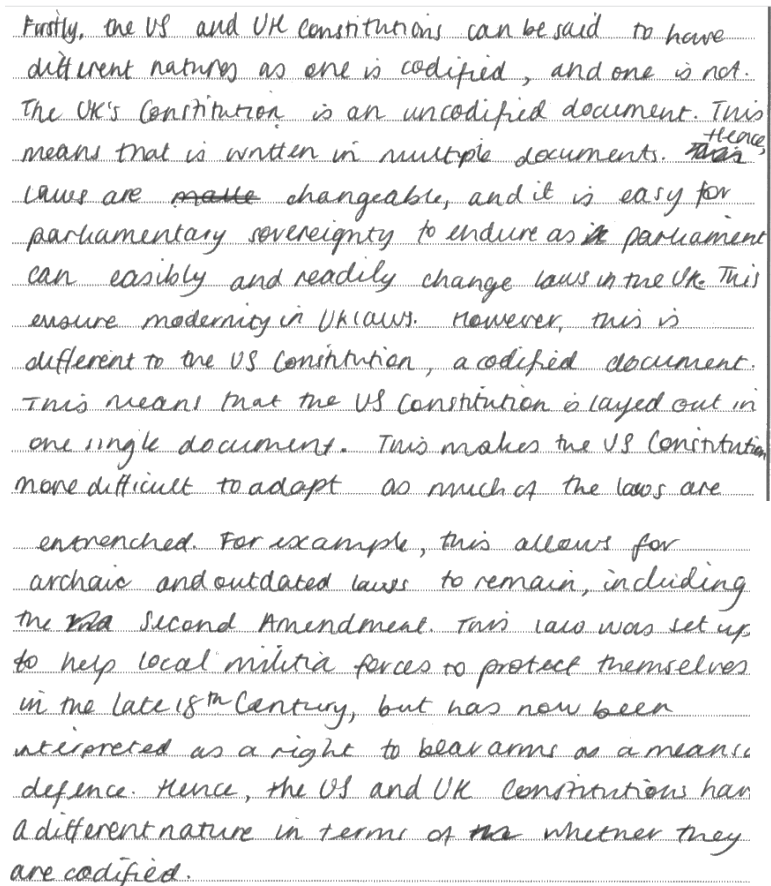 Firstly, the US and UK Constitutions can be said to have
different natures as one is codified, and one is not.
The UK's Constitution is an uncodified document. This
means that is written in multiple documents. Hence,
laws are made changeable, and it is easy for
parliamentary sovereignty to endure as parliament
can easibly and readily change laws in the UK. This
ensure modernity in UK laws. However, this is
different to the US Constitution, a codified document.
This means that the US Constitution is layed out in
one single document. This makes the US Constitution
more difficult to adapt as much of the laws are
entrenched. For example, this allows for
archaic and outdated laws to remain, including
the Second Amendment. This law was set up
to help local militia forces to protect themselves
in the late 18th Century, but has now been
interpreted as a right to bear arms as a means
defence. Hence, the US and UK Constitutions hav
a different nature in terms of whether they
are codified.